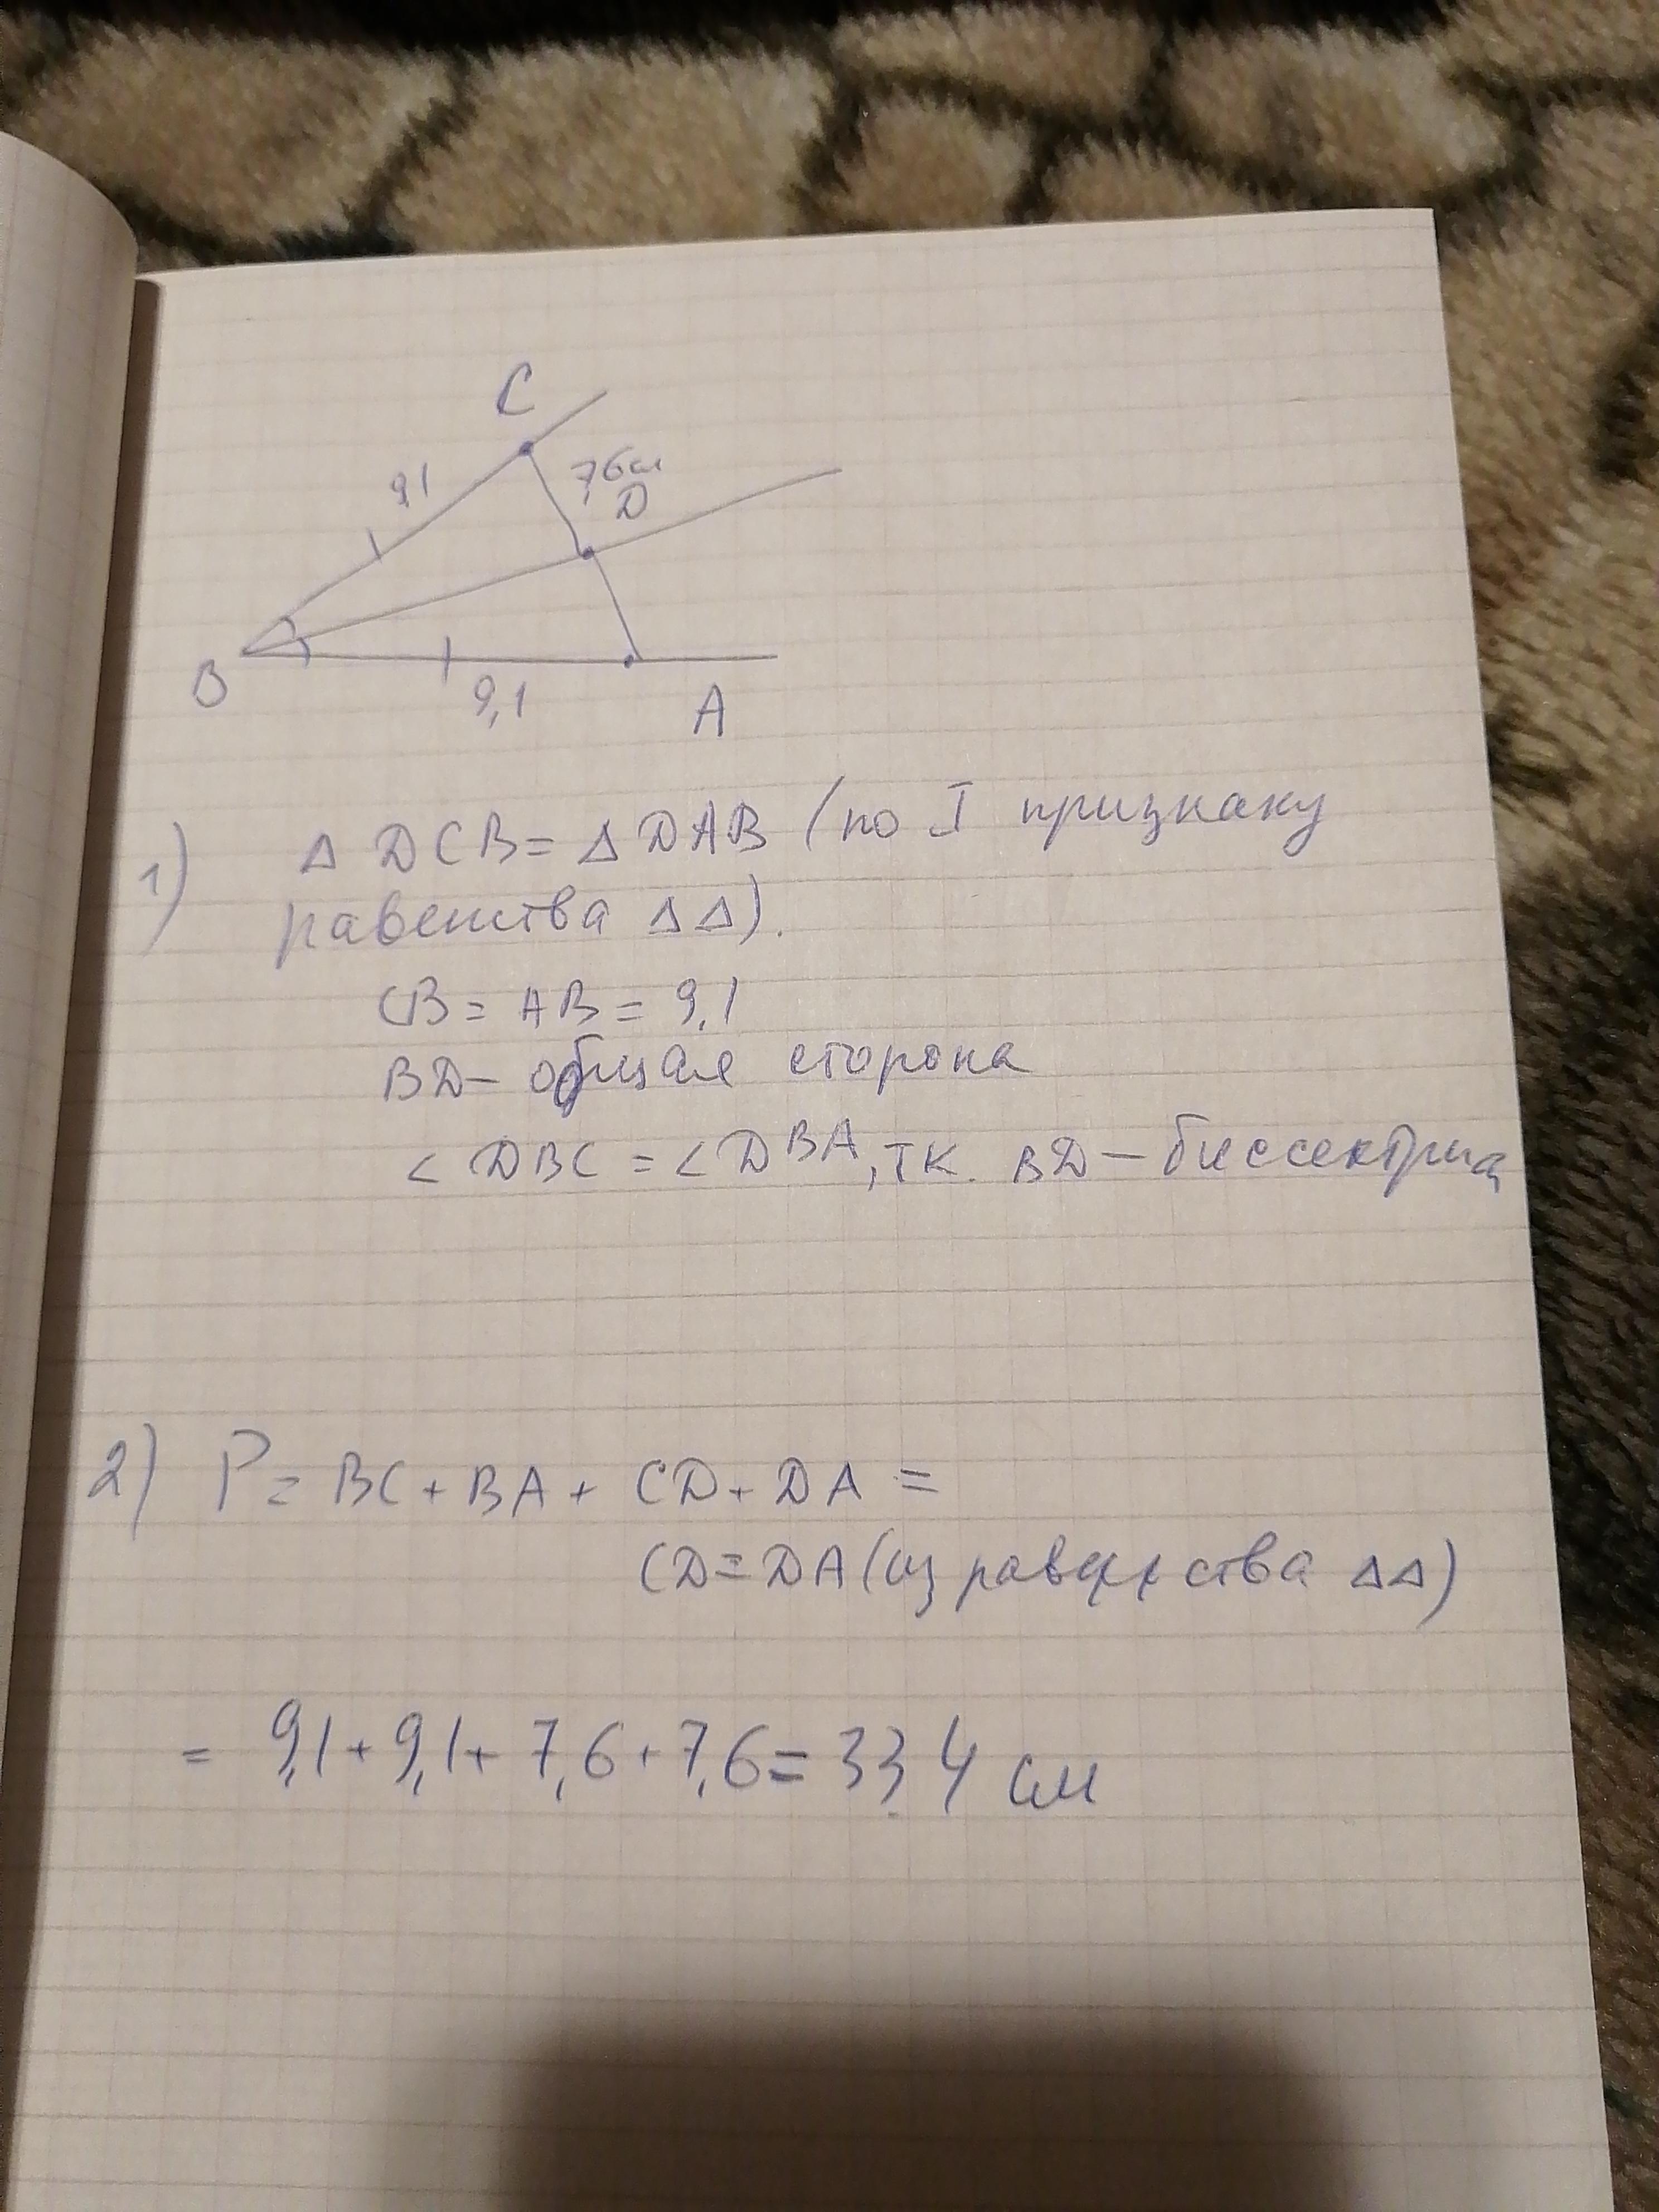 C
9,1
7,6 см
D
B
9,1
A
1) Δ DCB = Δ DAB (по I признаку
равенства Δ Δ).
CB = AB = 9,1
BD - общая сторона
< DBC = < DBA, тк. BD - биссектриса
2) P = BC + BA + CD + DA =
CD = DA (из равенства Δ Δ)
= 9,1 + 9,1 + 7,6 + 7,6 = 33,4 см